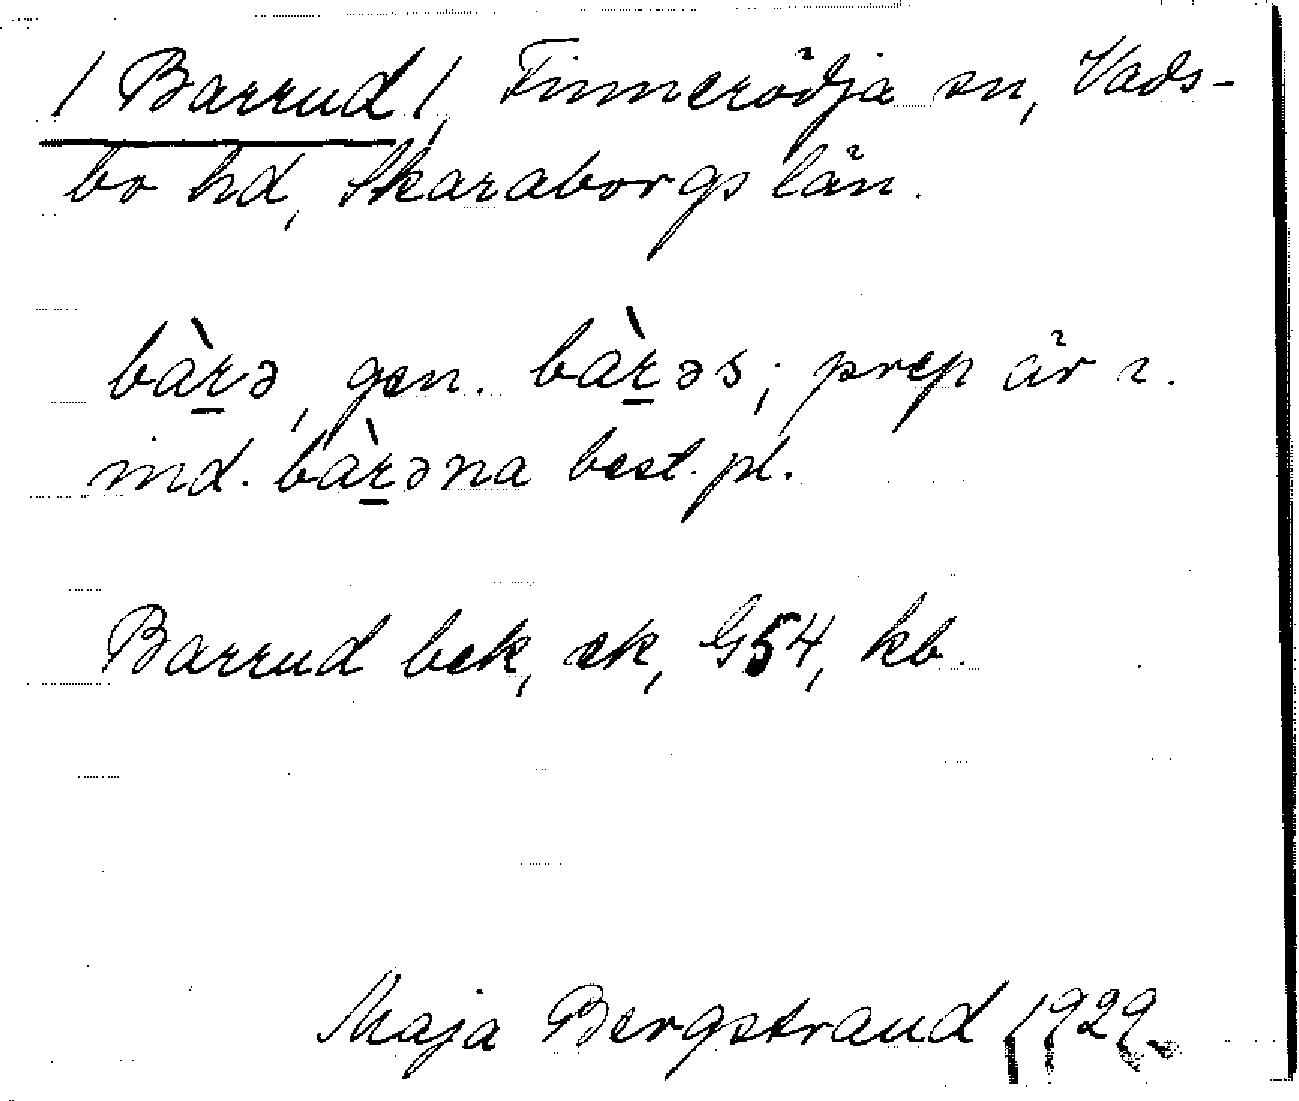 / Barrud /, Finnerödja sn, Vads-
bo hd, Skaraborgs län.
bàr̲ə, gen. bàr̲əs; prep är i.
ind. bàr̲əna best. pl.
Barrud bek, ek, G54, kb.
Maja Bergstrand 1929.